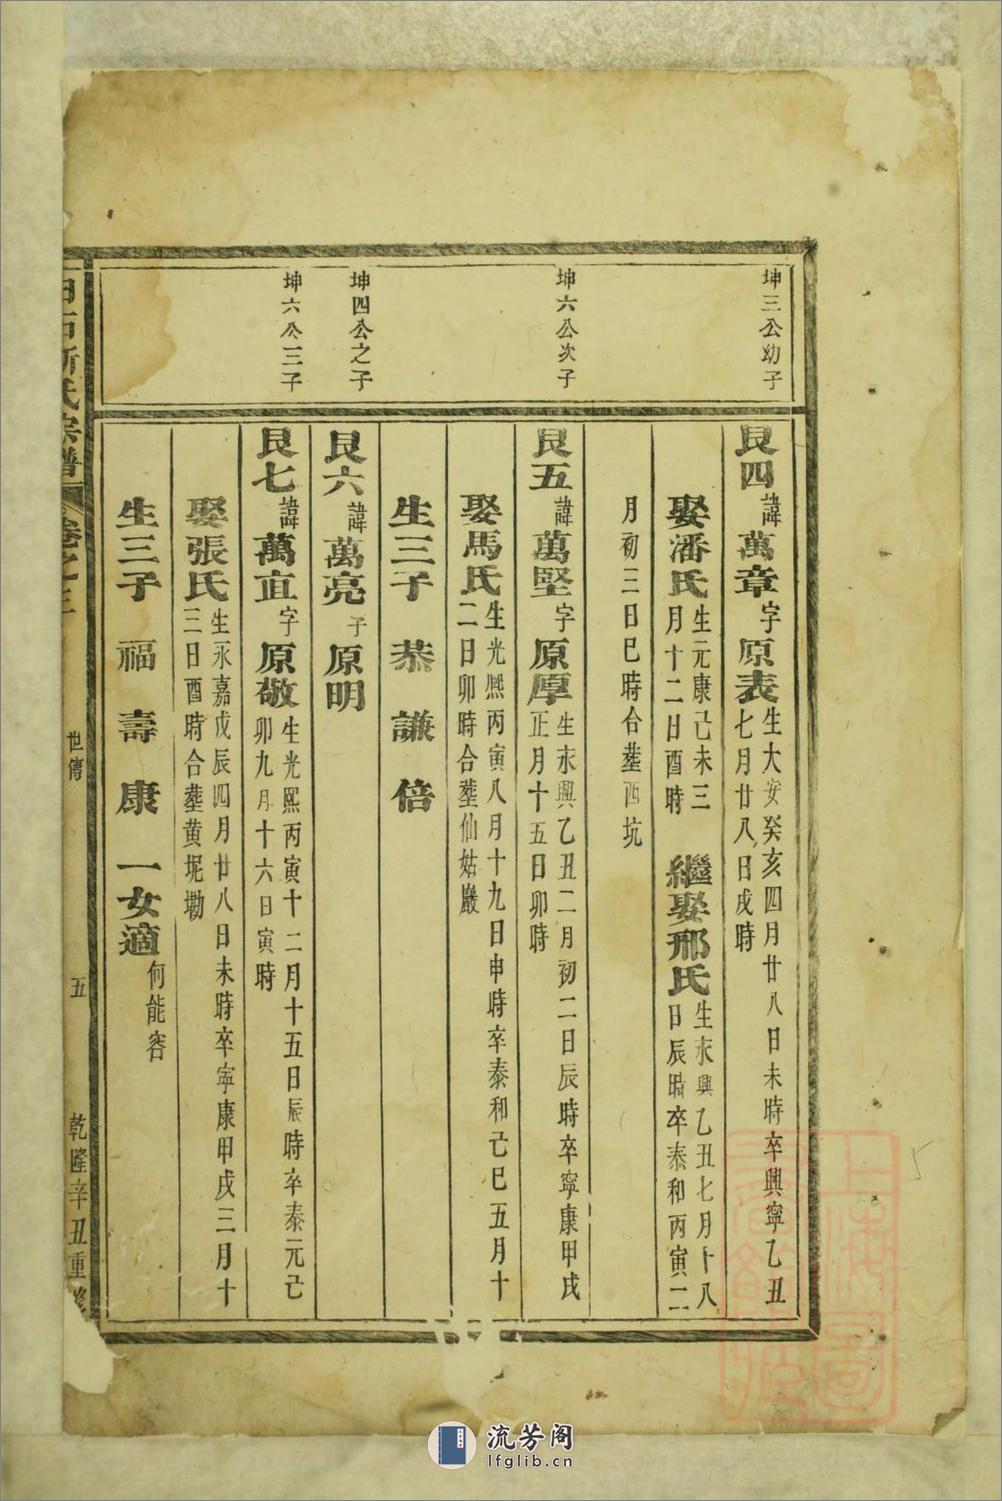 坤三公幼子
坤六公次子
坤四公之子
坤六公三子
艮四 諱 萬章 字 原表 生大安癸亥四月廿八日未時卒興寧乙丑
七月廿八日戌時
娶潘氏 生元康己未三
月十二日酉時
繼娶邢氏 生永興乙丑七月十八
日辰時卒泰和丙寅二
月初三日巳時合塟西坑
艮五 諱 萬堅 字 原厚 生永興乙丑二月初二日辰時卒寧康甲戌
正月十五日卯時
娶馬氏 生光熈丙寅八月十九日申時卒泰和己巳五月十
二日卯時合塟仙姑巖
生三子 恭 謙 倍
艮六 諱 萬亮 子 原明
艮七 諱 萬直 字 原敬 生光熙丙寅十二月十五日辰時卒泰元己
卯九月十六日寅時
娶張氏 生永嘉戊辰四月廿八日未時卒寧康甲戌三月十
三日酉時合塟黄坭墈
生三子 福 壽 康 一女適 何能容
石斯氏宗譜 卷之三 世傳 五 乾隆辛丑重修
5
流芳阁
lfglib.cn